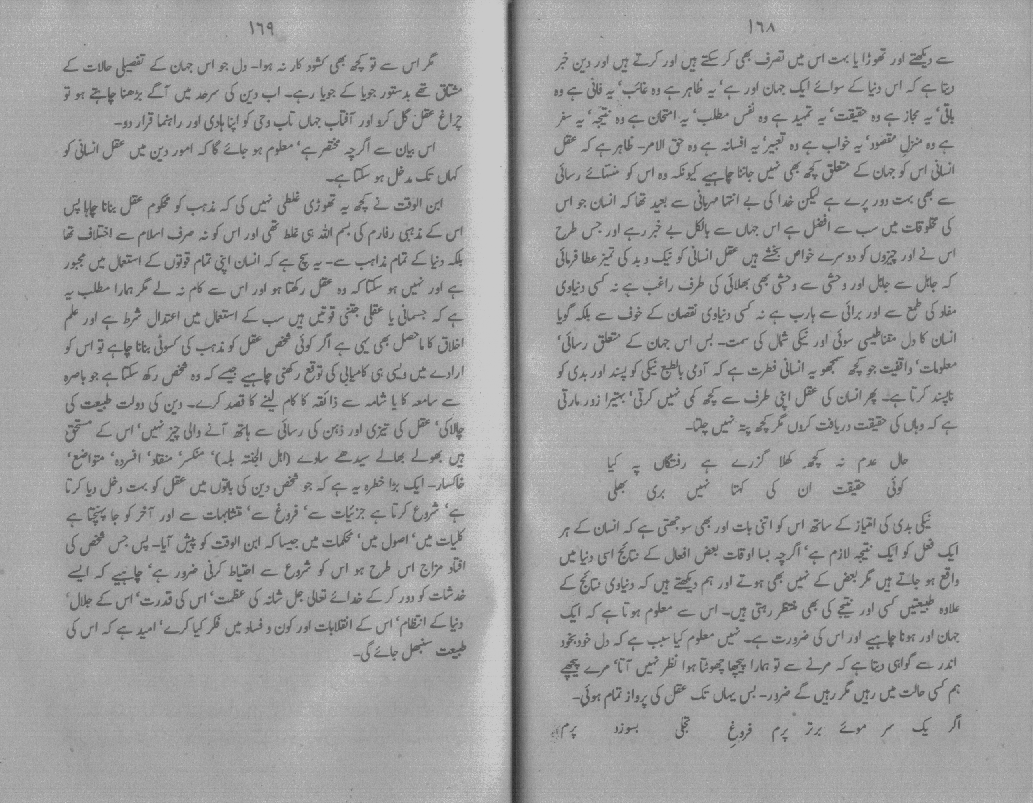 ۱۶۸
سے دیکھتے اور تھوڑا یا بہت اس میں تصرف بھی کر سکتے ہیں اور کرتے ہیں اور دین خبر
دیتا ہے کہ اس دنیا کے سوائے ایک جہان اور ہے‘ یہ ظاہر ہے وہ غائب‘ یہ فانی ہے وہ
باقی‘ یہ مجاز ہے وہ حقیقت‘ یہ تمہید ہے وہ نفس مطلب‘ یہ امتحان ہے وہ نتیجہ‘ یہ سفر
ہے وہ منزلِ مقصود‘ یہ خواب ہے وہ تعبیر‘ یہ افسانہ ہے وہ حق الامر۔ ظاہر ہے کہ عقل
انسانی اس کو جہان کے متعلق کچھ بھی نہیں جاننا چاہیے کیونکہ وہ اس کو منتہائے رسائی
سے بھی بہت دور پرے ہے لیکن خدا کی بے انتہا مہربانی سے بعید تھا کہ انسان جو اس
کی مخلوقات میں سب سے افضل ہے اس جہاں سے بالکل بے خبر رہے اور جس طرح
اس نے اور چیزوں کو دوسرے خواص بخشے ہیں عقل انسانی کو نیک و بد کی تمیز عطا فرمائی
کہ جاہل سے جاہل اور وحشی سے وحشی بھی بھلائی کی طرف راغب ہے نہ کسی دنیاوی
مفاد کی طمع سے اور برائی سے ہارب ہے نہ کسی دنیاوی نقصان کے خوف سے بلکہ گویا
انسان کا دل مقناطیسی سوئی اور نیکی شمال کی سمت۔ بس اس جہان کے متعلق رسائی‘
معلومات‘ واقفیت جو کچھ سمجھو یہ انسانی فطرت ہے کہ آدمی بالطبع نیکی کو پسند اور بدی کو
ناپسند کرتا ہے۔ پھر انسان کی عقل اپنی طرف سے کچھ کمی نہیں کرتی‘ بہتیرا زور مارتی
ہے کہ وہاں کی حقیقت دریافت کروں مگر کچھ پتہ نہیں چلتا۔
حال عدم نہ کچھ کھلا گزرے ہے رفتگاں پہ کیا
کوئی حقیقت ان کی کہتا نہیں بری بھلی
نیکی بدی کی امتیاز کے ساتھ اس کو اتنی بات اور بھی سوجھتی ہے کہ انسان کے ہر
ایک فعل کو ایک نتیجہ لازم ہے‘ اگرچہ بسا اوقات بعض افعال کے نتائج اسی دنیا میں
واقع ہو جاتے ہیں مگر بعض کے نہیں بھی ہوتے اور ہم دیکھتے ہیں کہ دنیاوی نتائج کے
علاوہ طبیعتیں کسی اور نتیجے کی بھی منتظر رہتی ہیں۔ اس سے معلوم ہوتا ہے کہ ایک
جہان اور ہونا چاہیے اور اس کی ضرورت ہے۔ نہیں معلوم کیا سبب ہے کہ دل خودبخود
اندر سے گواہی دیتا ہے کہ مرنے سے تو ہمارا پیچھا چھوٹتا ہوا نظر نہیں آتا‘ مرے پیچھے
ہم کسی حالت میں رہیں مگر رہیں گے ضرور۔ بس یہاں تک عقل کی پرواز تمام ہوئی۔
اگر یک سر موئے برتر پرم فروغِ تجلی بسوزد پرم
۱۶۹
مگر اس سے تو کچھ بھی کشود کار نہ ہوا۔ دل جو اس جہان کے تفصیلی حالات کے
مشتاق تھے بدستور جویا کے جویا رہے۔ اب دین کی سرحد میں آگے بڑھنا چاہتے ہو تو
چراغِ عقل گل کرو اور آفتاب جہاں تاب وحی کو اپنا ہادی اور راہنما قرار دو۔
اس بیان سے اگرچہ مختصر ہے‘ معلوم ہو جائے گا کہ امور دین میں عقل انسانی کو
کہاں تک مدخل ہو سکتا ہے۔
ابن الوقت نے کچھ یہ تھوڑی غلطی نہیں کی کہ مذہب کو محکوم عقل بنانا چاہا پس
اس کے مذہبی رفارم کی بسم اللہ ہی غلط تھی اور اس کو نہ صرف اسلام سے اختلاف تھا
بلکہ دنیا کے تمام مذاہب سے۔ یہ سچ ہے کہ انسان اپنی تمام قوتوں کے استعمال میں مجبور
ہے اور نہیں ہو سکتا کہ وہ عقل رکھتا ہو اور اس سے کام نہ لے مگر ہمارا مطلب یہ
ہے کہ جسمانی یا عقلی جتنی قوتیں ہیں سب کے استعمال میں اعتدال شرط ہے اور علم
اخلاق کا ماحصل بھی یہی ہے اگر کوئی شخص عقل کو مذہب کی کسوٹی بنانا چاہے تو اس کو
ارادے میں ویسی ہی کامیابی کی توقع رکھنی چاہیے جیسے کہ وہ شخص رکھ سکتا ہے جو باصرہ
سے سامعہ کا یا شامہ سے ذائقہ کا کام لینے کا قصد کرے۔ دین کی دولت طبیعت کی
چالاکی‘ عقل کی تیزی اور ذہن کی رسائی سے ہاتھ آنے والی چیز نہیں‘ اس کے مستحق
ہیں بھولے بھالے سیدھے سادے (اہل الجنتہ بلہ)‘ منکسر‘ منقاد‘ افسردہ‘ متواضع‘
خاکسار۔ ایک بڑا خطرہ یہ ہے کہ جو شخص دین کی باتوں میں عقل کو بہت دخل دیا کرتا
ہے‘ شروع کرتا ہے جزئیات سے‘ فروغ سے‘ متشابہات سے اور آخر کو جا پہنچتا ہے
کلیات میں‘ اصول میں‘ محکمات میں جیسا کہ ابن الوقت کو پیش آیا۔ پس جس شخص کی
افتاد مزاج اس طرح ہو اس کو شروع سے احتیاط کرنی ضرور ہے‘ چاہیے کہ ایسے
خدشات کو دور کر کے خدائے تعالیٰ جل شانہ کی عظمت‘ اس کی قدرت‘ اس کے جلال‘
دنیا کے انتظام‘ اس کے انقلابات اور کون و فساد میں فکر کیا کرے‘ امید ہے کہ اس کی
طبیعت سنبھل جائے گی۔